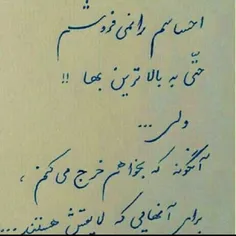 احساسم را نمی فروشم
حتّی به بالاترین بها !!
ولی...
آنگونه که بخواهم خرج می کنم ،
برای آنهایی که لایقش هستند...